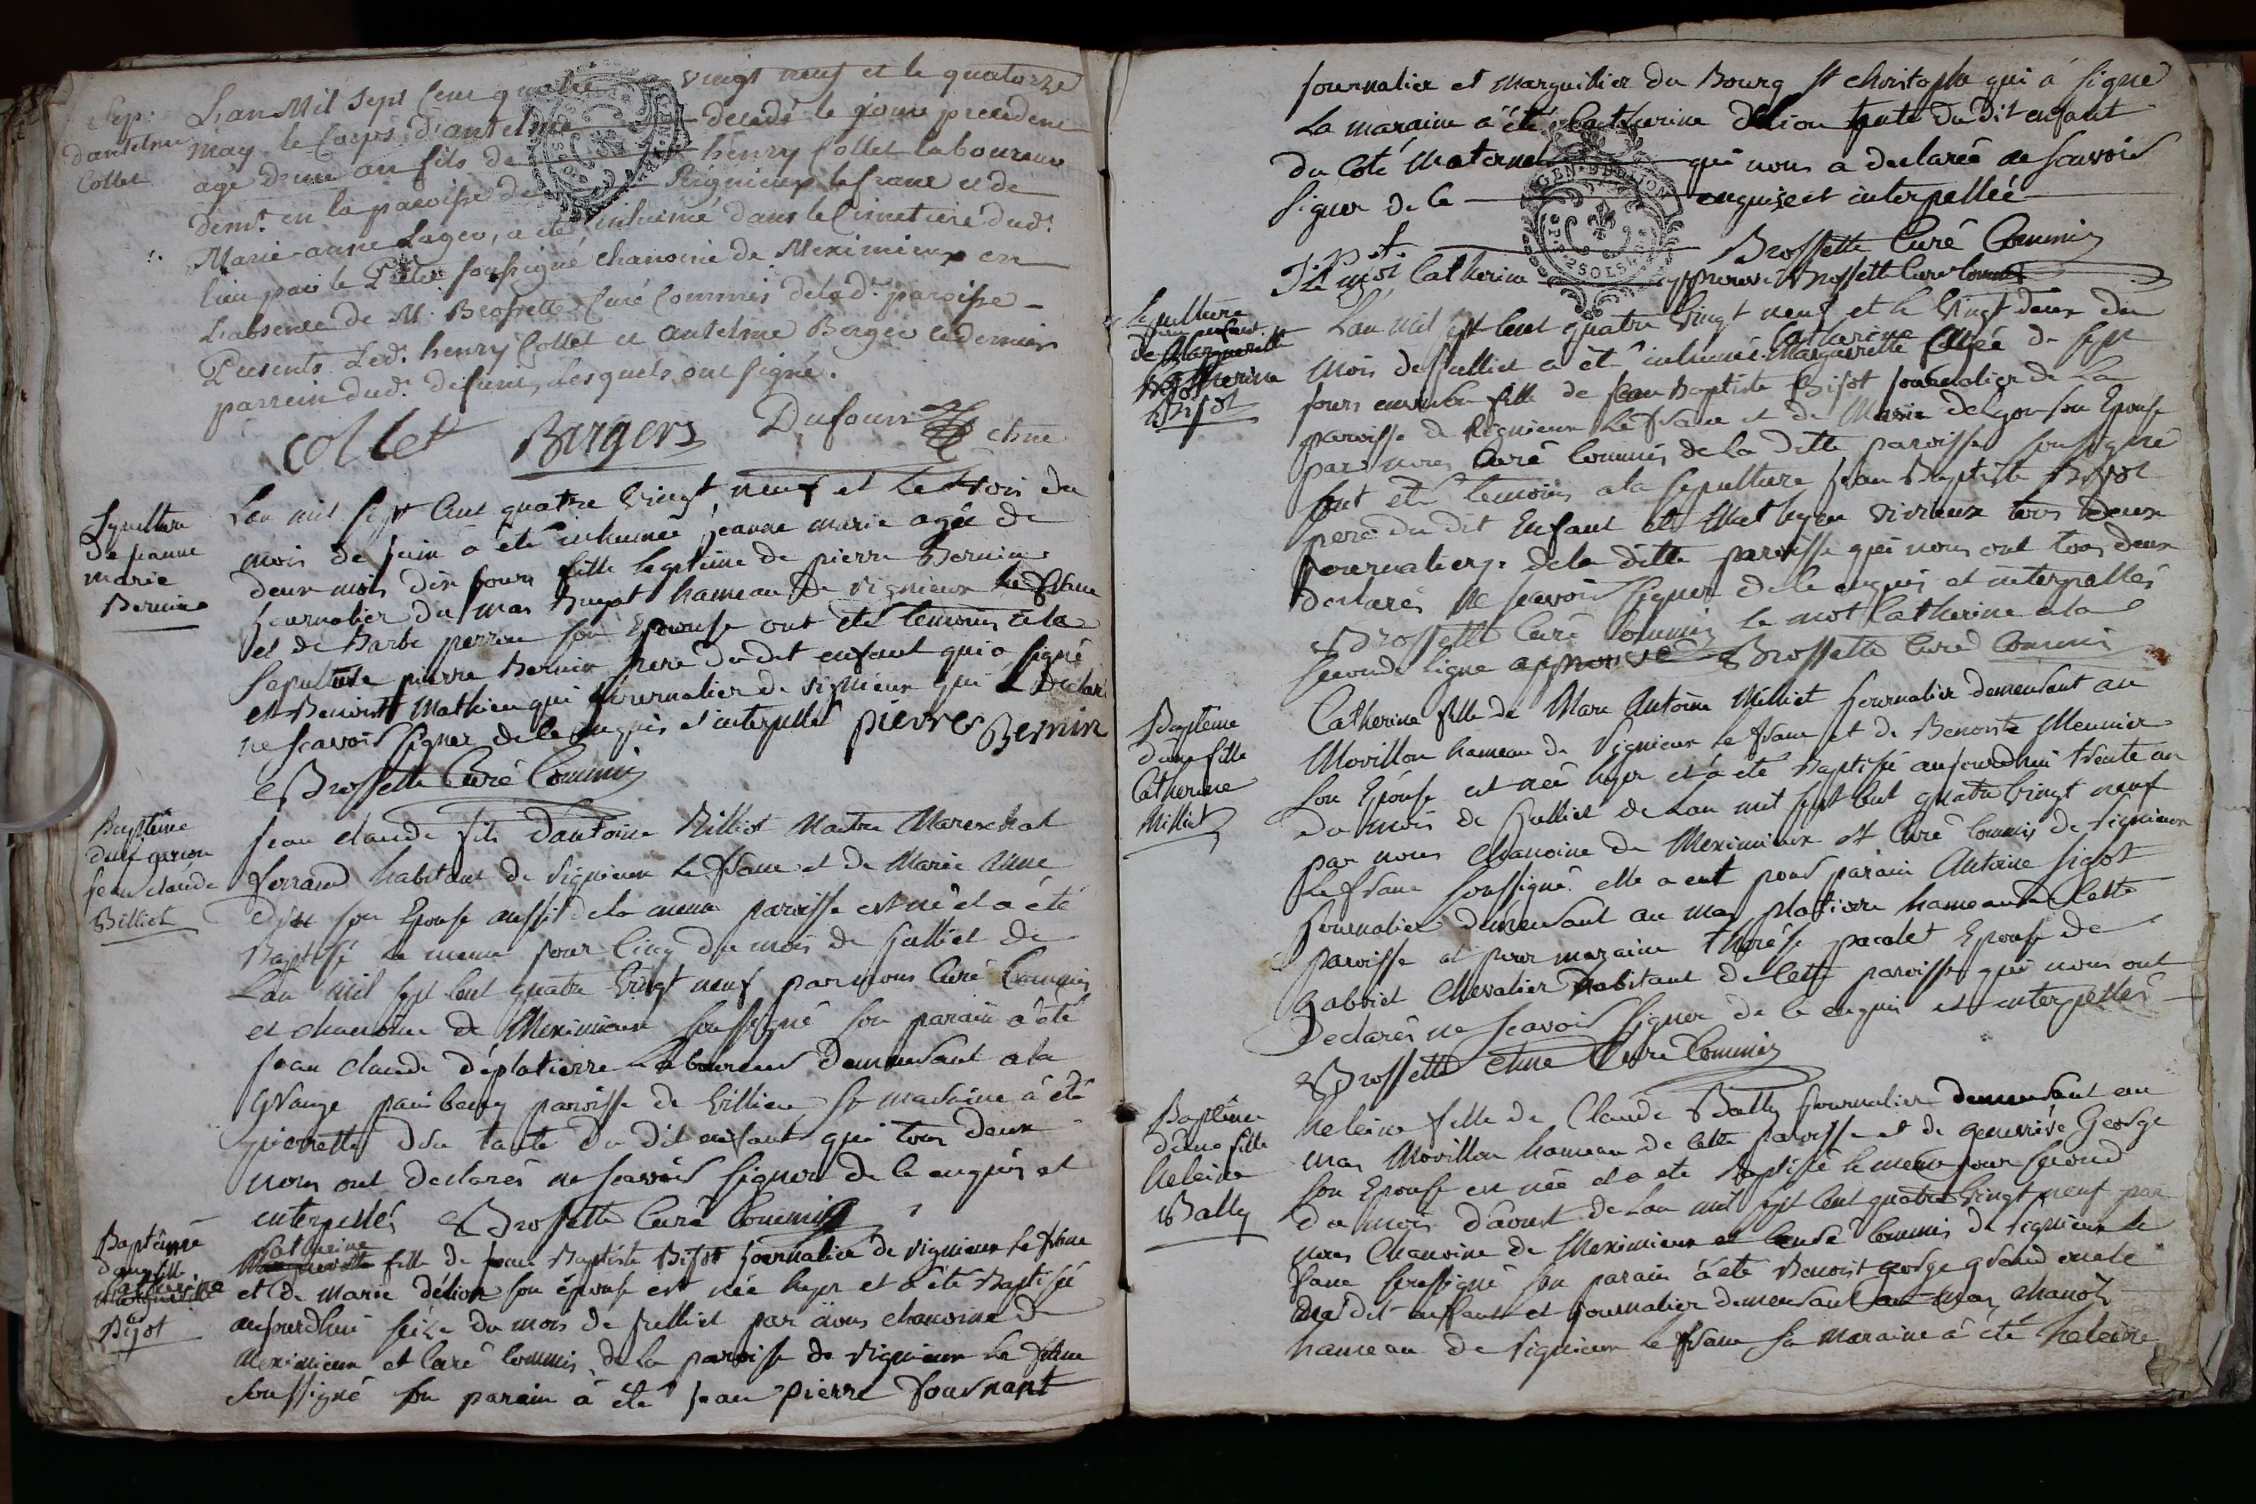 Sep:
d'antelme
Collet
L'an Mil Sept Cent quatre vingt neuf et le quatorze
may le Corps d'antelme decedé le jour precedent
agé d'un an fils de henry Collet laboureur
demt. en la paroisse de Signieux le franc et de
Marie-anne Lager, a été inhumé dans le Cimetiere dud.
lieu par le Prêtre soussigné chanoine de Meximieux en
L'absence de M. Brossette Curé Commis de lad. paroisse
Presents Led. henry Collet et antelme Berger ce dernier
parrein dud. défunt, lesquels ont signé.
collet Bergers Dufour chne
Sepulture
de jeanne
marie
Bernin
Lan mil sept Cent quatre vingt neuf et le trois du
mois de juin a été inhumée jeanne marie agée de
deux mois dix jours fille legitime de pierre Bernin
journalier du mas hameau de vignieux le franc
et de Barbe perron son Epouse ont été temoins a la
sepulture pierre Bernin pere du dit enfant qui a signé
et Benoist Mathieu journalier de vignieux qui a declaré
ne scavoir signer de ce enquis et interpellé pierre Bernin
Brossette Curé Commis
Baptême
dun garcon
jean claude
Billiet
jean claude fils d'antoine Billiet Maitre Mareschal
ferrand habitant de vignieux le franc et de Marie Anne
son Epouse aussi de la meme paroisse est né et a été
Baptisé le meme jour Cinq du mois de Julliet de
Lan mil sept Cent quatre vingt neuf par nous Curé Commis
et chanoine de Meximieux soussigné son parain a été
jean claude déplatierre Laboureur demeurant a la
Grange paroisse de Villieu sa maraine a été
pierrette tante du dit enfant qui tous deux
nous ont declarés ne scavoir signer de ce enquis et
interpellés Brossette Curé Commis
Baptême
d'une fille
Catherine
Marguerite
Bijot
Catherine
Marguerite fille de jean Baptiste Bijot journalier de vignieux le franc
et de marie délion son épouse est née hyer et a été Baptisée
aujourdhui seize du mois de julliet par nous chanoine de
Meximieux et Curé Commis de la paroisse de vignieux le franc
soussigné son parain a été jean pierre fournant
journalier et Marguillier du Bourg st christophe qui a signé
La maraine a été Catherine délion tante du dit enfant
du Coté Maternel qui nous a declaré ne scavoir
signer de ce enquise et interpellée
J. P. f. Brossette Curé Commis
Le mot Catherine approuvé Brossette Curé Commis
Sepulture
d'un enfant
de Marguerite
Catherine
Bijot
Bijot
L'an mil sept Cent quatre vingt neuf et le vingt deux du
Catherine
mois de Julliet a été inhumée Marguerite agée de sept
jours environ fille de jean Baptiste Bijot journalier de La
paroisse de Signieux Le franc et de Marie delyon son Epouse
par nous Curé Commis de la ditte paroisse soussigné
ont été temoins a la sepulture jean Baptiste Bijot
pere du dit Enfant et Mathyeu tous deux
journaliers de la ditte paroisse qui nous ont tous deux
declarés ne scavoir signer de ce enquis et interpellés
Brossette Curé Commis le mot Catherine a la
seconde ligne approuvé Brossette Curé Commis
Baptême
d'une fille
Catherine
Milliet
Catherine fille de Marc Antoine Milliet journalier demeurant au
Movillon hameau de Vignieux le franc et de Benoiste Meunier
son Epouse est née hyer et a été Baptisée aujourdhui trente un
du mois de Julliet de Lan mil sept Cent quatre vingt neuf
par nous chanoine de Meximieux et Curé Commis de Signieux
Le franc soussigné elle a eut pour parain Antoine Sigot
journalier demeurant au mas platierre hameau de Cette
paroisse et pour maraine thérèse pacalet Epouse de
gabriel Chevalier habitant de Cette paroisse qui nous ont
Declarés ne scavoir signer de ce enquis et interpellés
Brossette chne Curé Commis
Baptême
d'une fille
heleine
Bally
heleine fille de Claude Bally journalier demeurant au
mas Movillon hameau de Cette paroisse et de genevieve George
son Epouse est née et a été Baptisée le meme jour second
du mois d'aoust de Lan mil sept Cent quatre vingt neuf par
nous Chanoine de Meximieux et Curé Commis de Signieux le
franc soussigné son parain a été Benoist george grand oncle
du dit enfant et journalier demeurant au mas
hameau de Signieux le franc sa maraine a été heleine
GEN DE LYON
2 SOLS